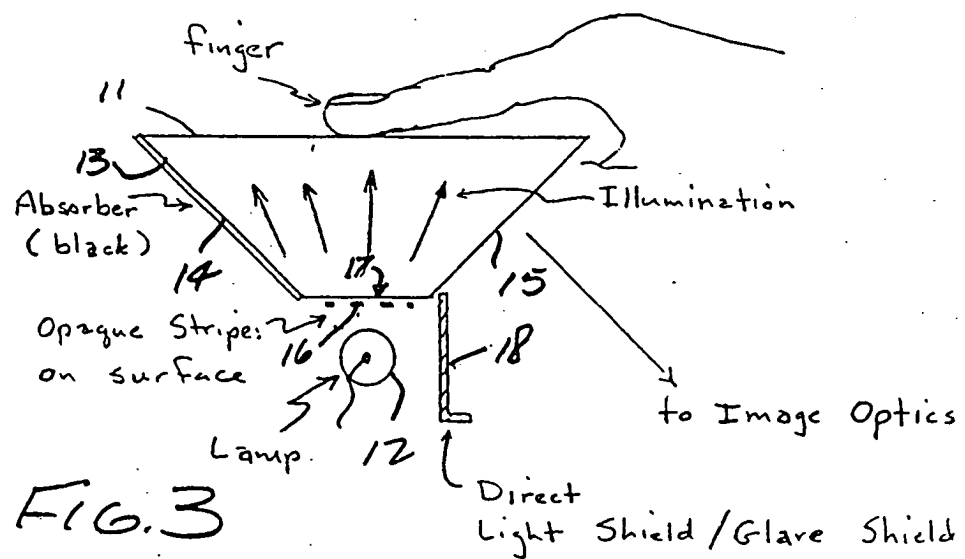 finger
11
13
Absorber
(black)
14
Illumination
17
15
Opaque Stripes
16
on surface
18
to Image Optics
Lamp
12
Direct
Light Shield/Glare Shield
FIG.3